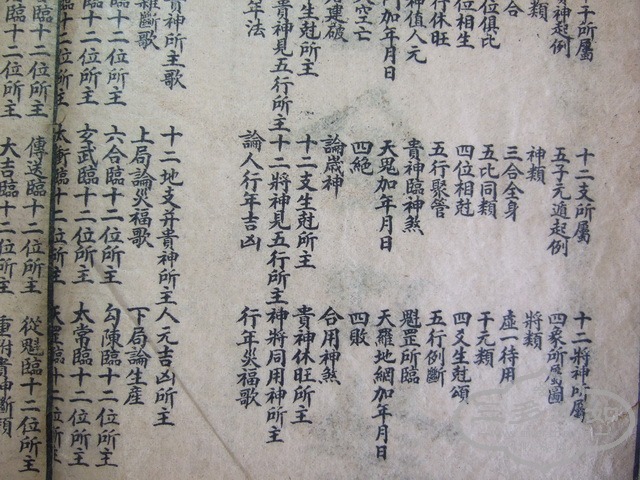 子所屬　十二支所屬　十二將神所屬
貴神起例　五子元遁起例　四象所屬圖
類　神類　將類
合　三合全身　虛一待用
位俱比　五比同類　干元類
位相生　四位相尅　四爻生尅頌
行休旺　五行聚管　五行例斷
神值人元　貴神臨神煞　魁罡所臨
門加年月日　天鬼加年月日　天羅地網加年月日
空亡　四絕　四敗
破　論歲神　合用神煞
生尅所主　十二支生尅所主　貴神休旺所主
貴神見五行所主　十二將神見五行所主　神將同用神所主
年法　論人行年吉凶　行年災福歌
貴神所主歌　十二地支并貴神所主　人元吉凶所主
雜斷歌　上局論災福歌　下局論生産
臨十二位所主　六合臨十二位所主　勾陳臨十二位所主
臨十二位所主　玄武臨十二位所主　太常臨十二位所主
臨十二位所主　太衝臨十二位所主　天罡臨十二位所主
臨十二位所主　傳送臨十二位所主　從魁臨十二位所主
臨十二位所主　大吉臨十二位所主　貴神斷